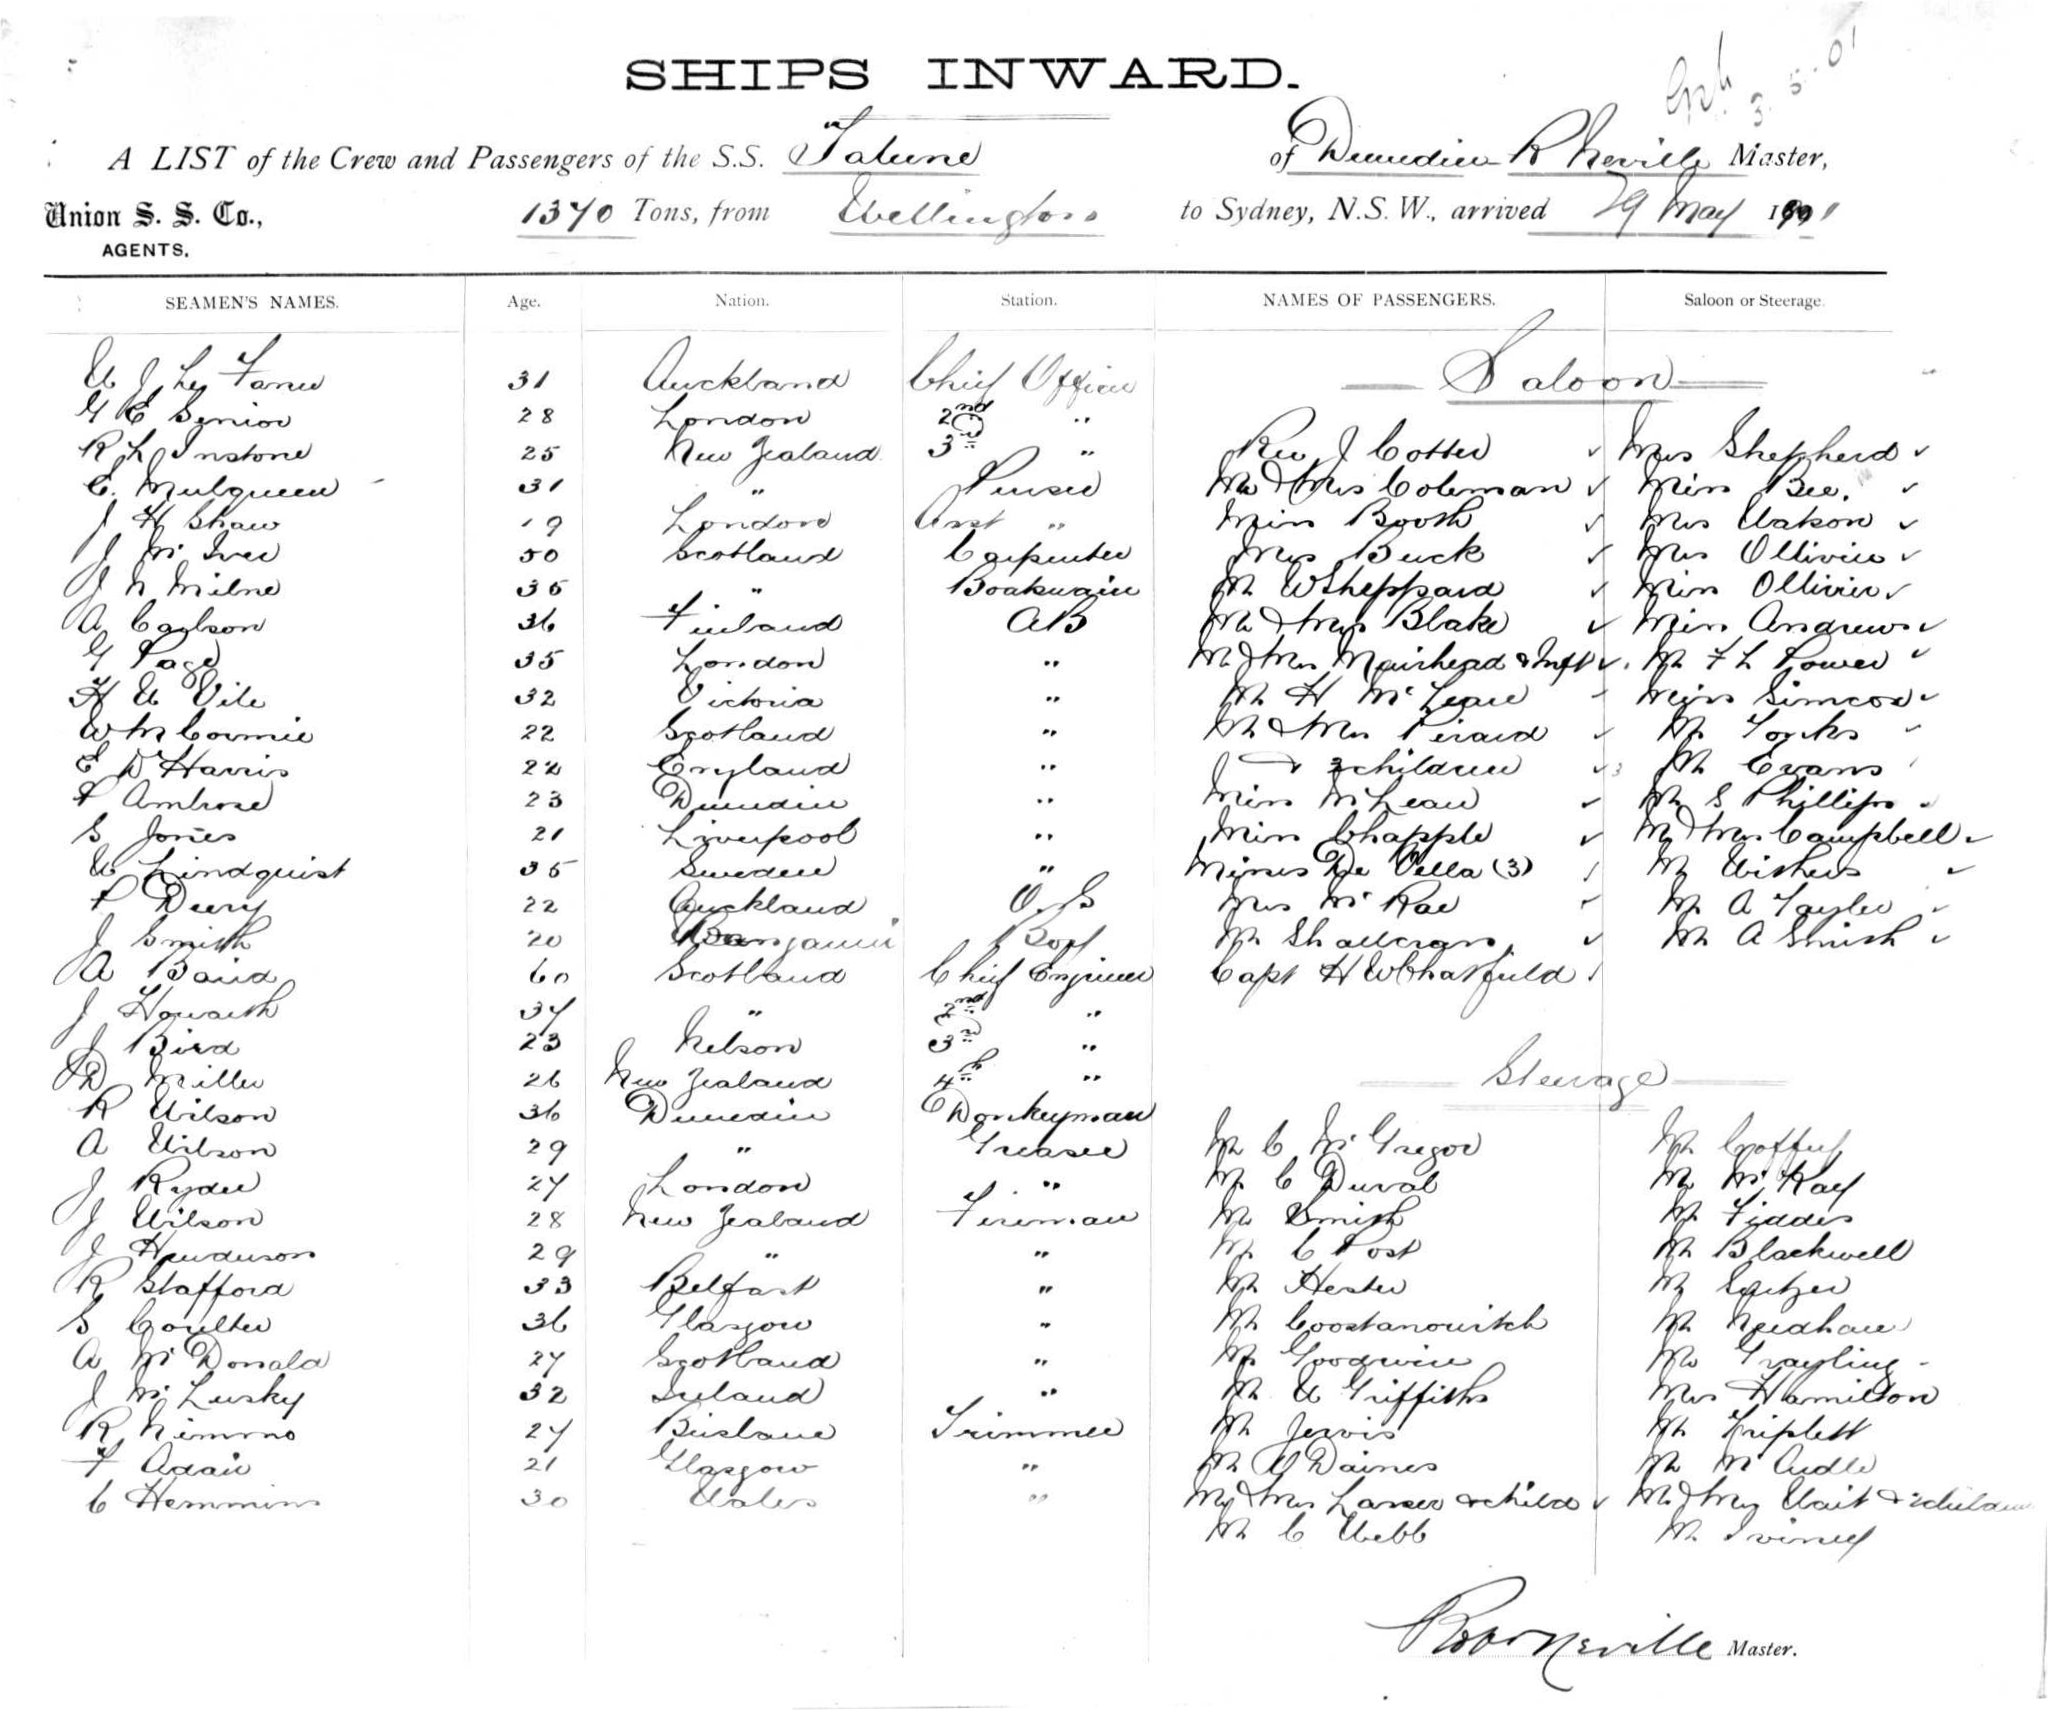 SHIPS INWARD.
3. 5. 01
A LIST of the Crew and Passengers of the S.S. Talune of Dunedin R Neville Master,
Union S. S. Co., AGENTS. 1370 Tons, from Wellington to Sydney, N.S.W., arrived 29 May 1901
SEAMEN'S NAMES. Age. Nation. Station. NAMES OF PASSENGERS. Saloon or Steerage.
Saloon
W J Le Fanu 31 Auckland Chief Officer
G E Senior 28 London 2nd "
R L Instone 25 New Zealand 3rd " Rev J Cotter Mrs Shepherd
C. Mulqueen 31 " Purser Mr & Mrs Coleman Miss Bee.
J H Shaw 19 London Asst " Miss Booth Mrs Watson
J McIver 50 Scotland Carpenter Mrs Buck Mrs Ollivier
J N Milne 35 " Boatswain Mr W Sheppard Miss Ollivier
A Carlson 36 Finland AB Mr & Mrs Blake Miss Andrews
G Page 35 London " Mr & Mrs Muirhead & Inft Mr F L Power
H W Vile 32 Victoria " Mr H McLean Miss Simcox
W McCormie 22 Scotland " Mr & Mrs Pirard Mr Yorks
E D Harris 22 England " & 3 children Mr Evans
P Ambrose 23 Dunedin " Miss McLean Mr S Phillips
S Jones 21 Liverpool " Miss Chapple Mr & Mrs Campbell
W Lindquist 35 Sweden " Misses De Vella (3) Mr Withers
P Deery 22 Auckland O.S Mrs McRae Mr A Tayler
J Smith 20 Boy Mr Shallcrass Mr A Smith
A Baird 60 Scotland Chief Engineer Capt H W Chatfield
J Howarth 37 " 2nd "
J Bird 23 Nelson 3rd "
D Miller 26 New Zealand 4th " Steerage
R Wilson 36 Dunedin Donkeyman
A Wilson 29 " Greaser Mr C McGregor Mr Coffey
J Ryder 27 London " Mr C Duval Mr McKay
J Wilson 28 New Zealand Fireman Mr Smith Mr Fiddes
J Henderson 29 " " Mr C Post Mr Blackwell
R Stafford 33 Belfast " Mr Hester Mr
S Coulter 36 Glasgow " Mr Coostanowitch Mr Needham
A McDonald 27 Scotland " Mr Goodwin Mr Grayling
J McLusky 32 Ireland " Mr W Griffiths Mrs Hamilton
R Nimmo 27 Brisbane Trimmer Mr Jervis Mr Triplett
F Adair 21 Glasgow " Mr Daines Mr McArdle
C Hemmins 30 Wales " Mr & Mrs Larsen & child Mr & Mrs Wait & 2 children
Mr C Webb Mr
Robt Neville Master.